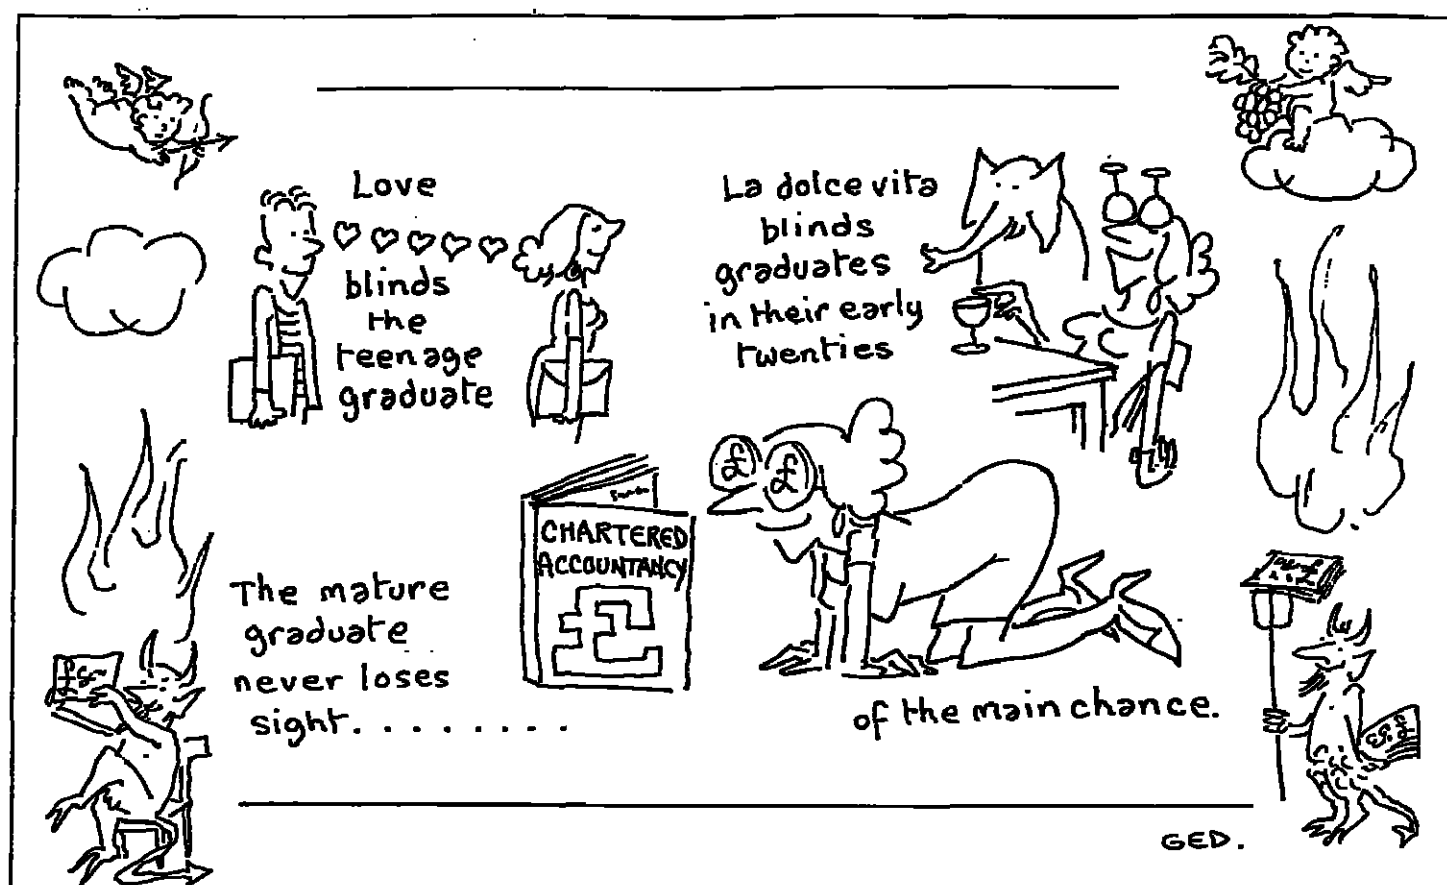 Love
blinds
the
teenage
graduate
La dolce vita
blinds
graduates
in their early
twenties
£
£
CHARTERED
ACCOUNTANCY
£
The mature
graduate
never loses
sight........
of the main chance.
GED.